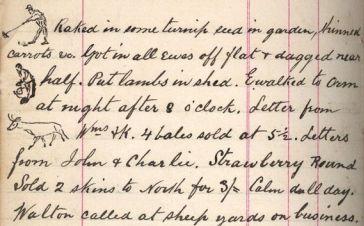 Raked in some turnip seed in garden, thinned
carrots &c. Got in all ewes off flat & dagged near
half. Put lambs in shed. E walked to
at night after 8 o'clock. Letter from
Wms & K. 4 bales sold at 5½. Letters
from John & Charlie. Strawberry Round
Sold 2 skins to North for 3/= Calm dull day.
Walton called at sheep yards on business.